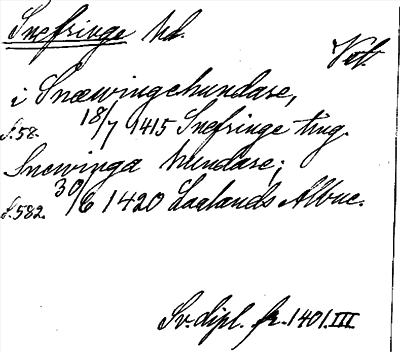 Snefringe hd.
Vstm
i Snæwingehundare,
S. 58. 18/7 1415 Snefringe ting.
Snewinga hundare;
S. 582. 30/6 1420 Laglands Albuc.
Sv. dipl. fr. 1401. III